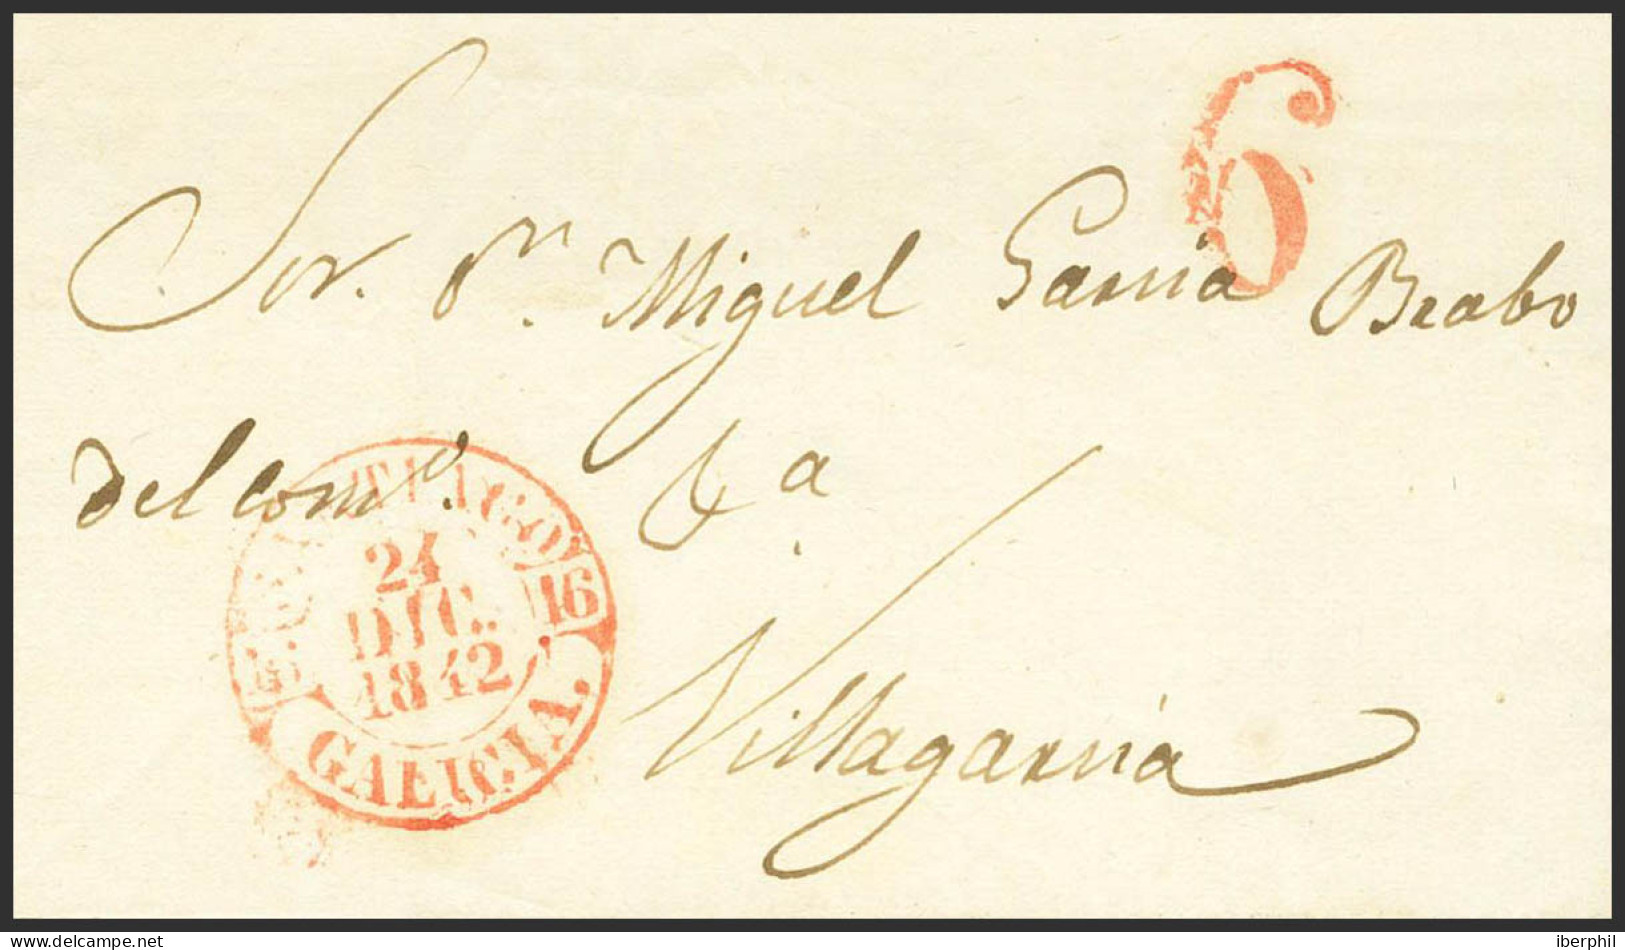 6
Sor. Dn. Miguel Garcia Brabo
del como.
SANTIAGO
24
DIC.
1842
16 16
GALICIA.
Villagarcia
delcampe.net
iberphil